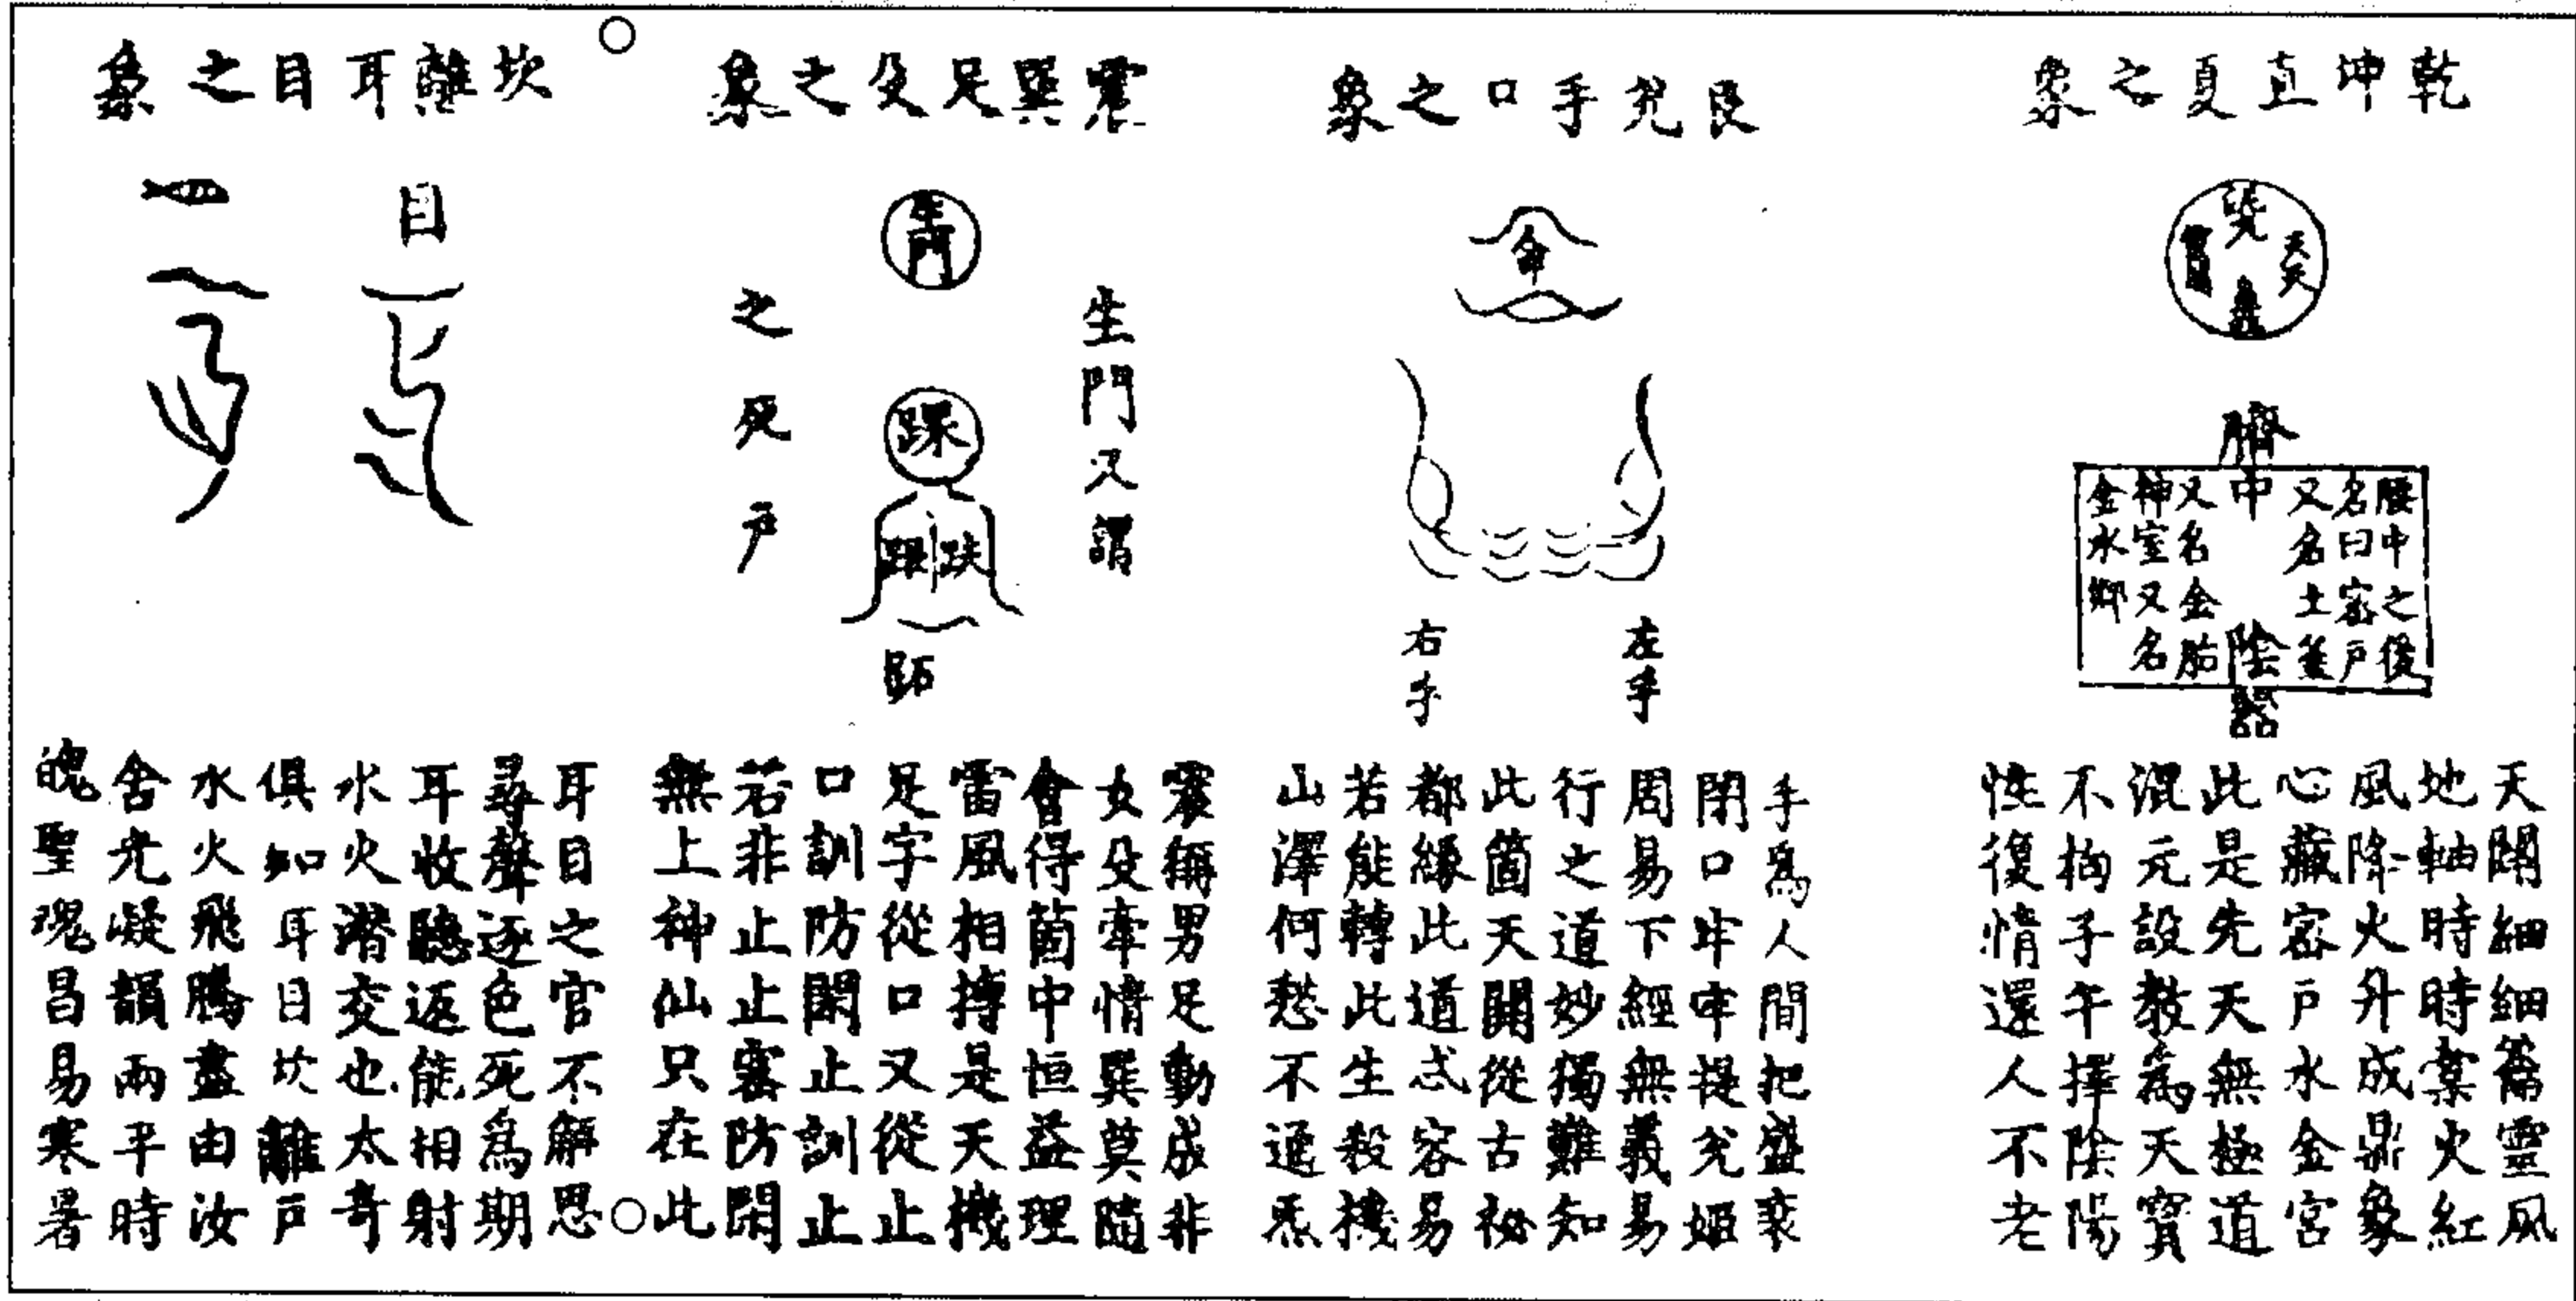 乾坤直夏之象
天天
臍
中
陰
器
腰中之後
名曰密戶
又名土釜
又名金胎
神室又名
金水鄉
天關細細蓄靈風
地軸時時槖火紅
風降火升成鼎象
心藏密戶水金宮
此是先天無極道
混元設教為天寶
不拘子午擇陰陽
性復情還人不老
艮兌手口之象
命
左手
右手
手為人間把盛衰
閉口牢牢提兌姬
周易下經無義易
行之道妙獨難知
此箇天關從古祕
都緣此道忒容易
若能轉此生殺機
山澤何愁不通炁
震巽足殳之象
生門
生門又謂
之死戶
踝
跟
趺
跖
震稱男足動成非
女殳牽情巽莫隨
會得箇中恒益理
雷風相搏是天機
足字從口又從止
口訓防閑止訓止
若非止止寡防閑
無上神仙只在此
坎離耳目之象
目
耳目之官不解思
尋聲逐色死為期
耳收聽返能相射
水火潛交也太奇
俱知耳目坎離戶
水火飛騰盡由汝
舍光凝韻兩平時
魄聖魂昌易寒暑